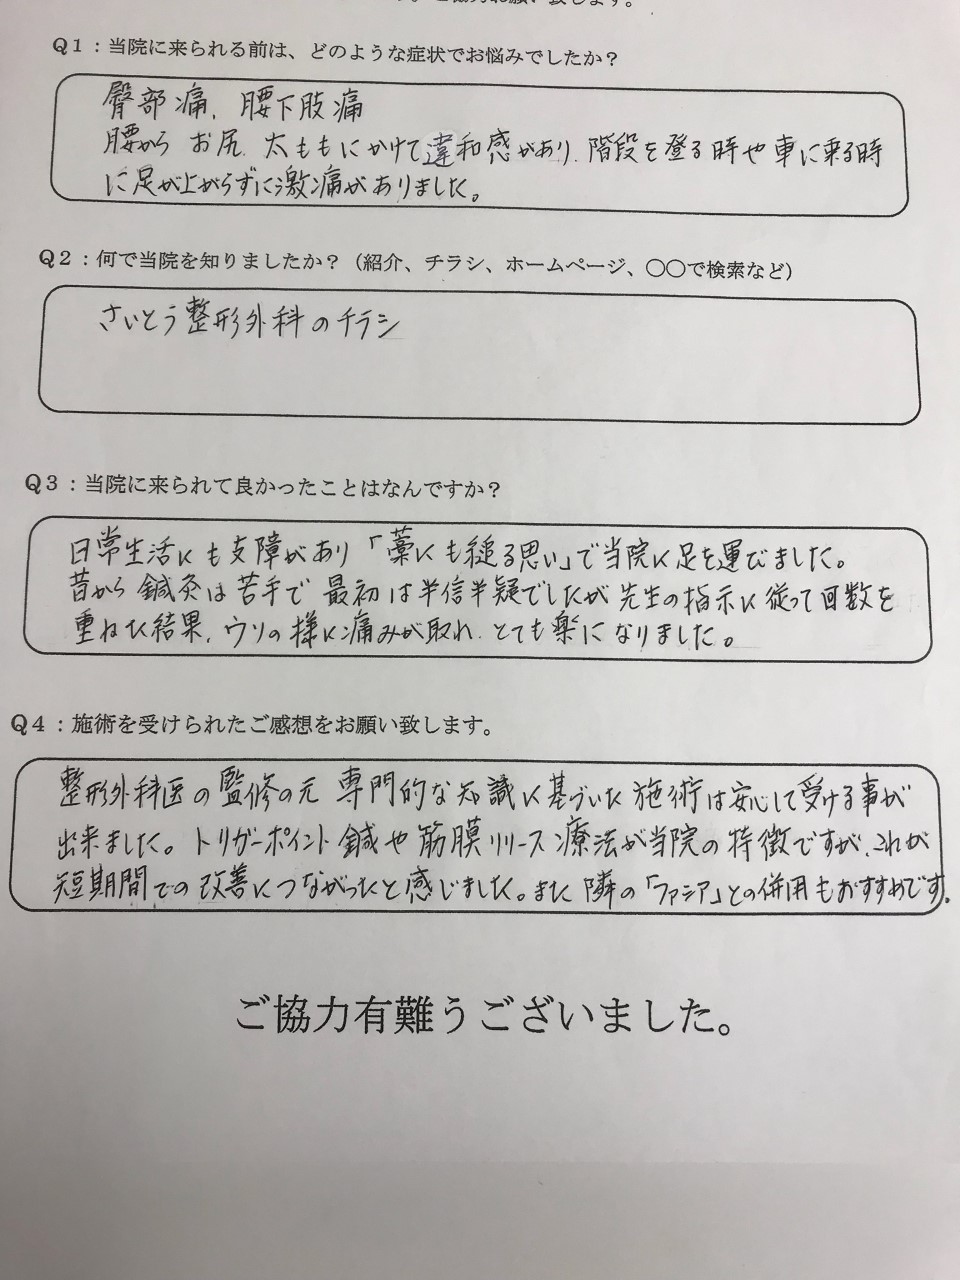 ご協力お願い致します。
Q1：当院に来られる前は、どのような症状でお悩みでしたか？
臀部痛、腰下肢痛
腰から お尻、太ももにかけて違和感があり、階段を登る時や車に乗る時
に足が上がらずに激痛がありました。
Q2：何で当院を知りましたか？（紹介、チラシ、ホームページ、〇〇で検索など）
さいとう整形外科のチラシ
Q3：当院に来られて良かったことはなんですか？
日常生活にも支障があり「藁にも縋る思い」で当院に足を運びました。
昔から鍼灸は苦手で最初は半信半疑でしたが先生の指示に従って回数を
重ねた結果、ウソの様に痛みが取れ、とても楽になりました。
Q4：施術を受けられたご感想をお願い致します。
整形外科医の監修の元 専門的な知識に基づいた施術は安心して受ける事が
出来ました。トリガーポイント鍼や筋膜リリース療法が当院の特徴ですが、これが
短期間での改善につながったと感じました。また隣の「ファシア」との併用もおすすめです.
ご協力有難うございました。